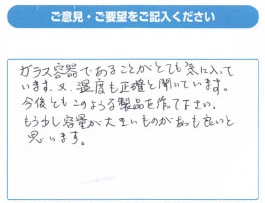 ご意見・ご要望をご記入ください
ガラス容器であることがとても気に入って
います。又、温度も正確と聞いています。
今後とものような製品を作って下さい。
もう少し容量が大きいものがあっても良いと
思います。